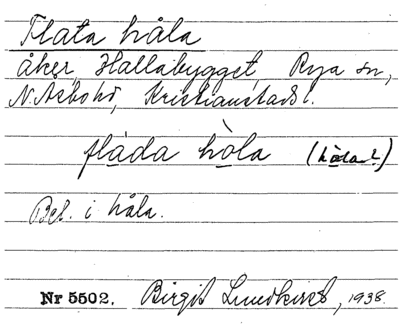 Flata håla
åker, Hallabygget, Rya sn,
N. Åsbohd, Kristianstads l.
flada hòla (hòla l.)
Bel. i håla.
Nr 5502. Birgit Lundkvist, 1938.